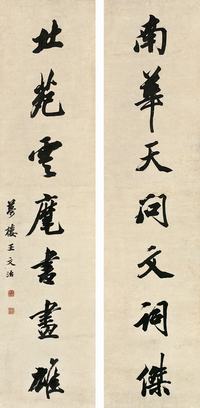 南華天問文詞傑
北苑雲麾書畫雄
夢樓王文治